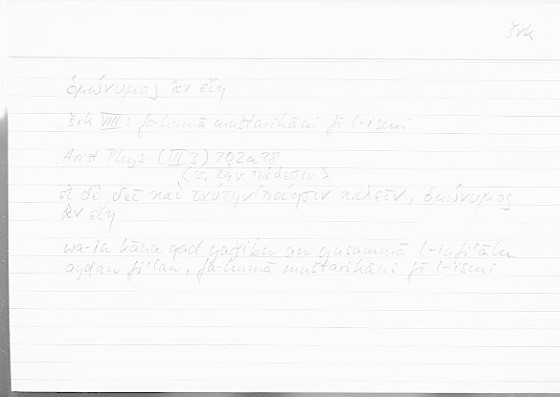 šrk
ὁμώνυμος ἂν εἴη
šrk VIII: fa-humā muštarikāni fī l-ismi
Arist. Phys. (III 3) 202a28
(sc. τὴν πάθησιν)
εἰ δὲ δεῖ καὶ ταύτην ποίησιν καλεῖν, ὁμώνυμος
ἂν εἴη
wa-in kāna qad yaǧibu an yusammā l-infiʿālu
ayḍan fiʿlan, fa-humā muštarikāni fī l-ismi